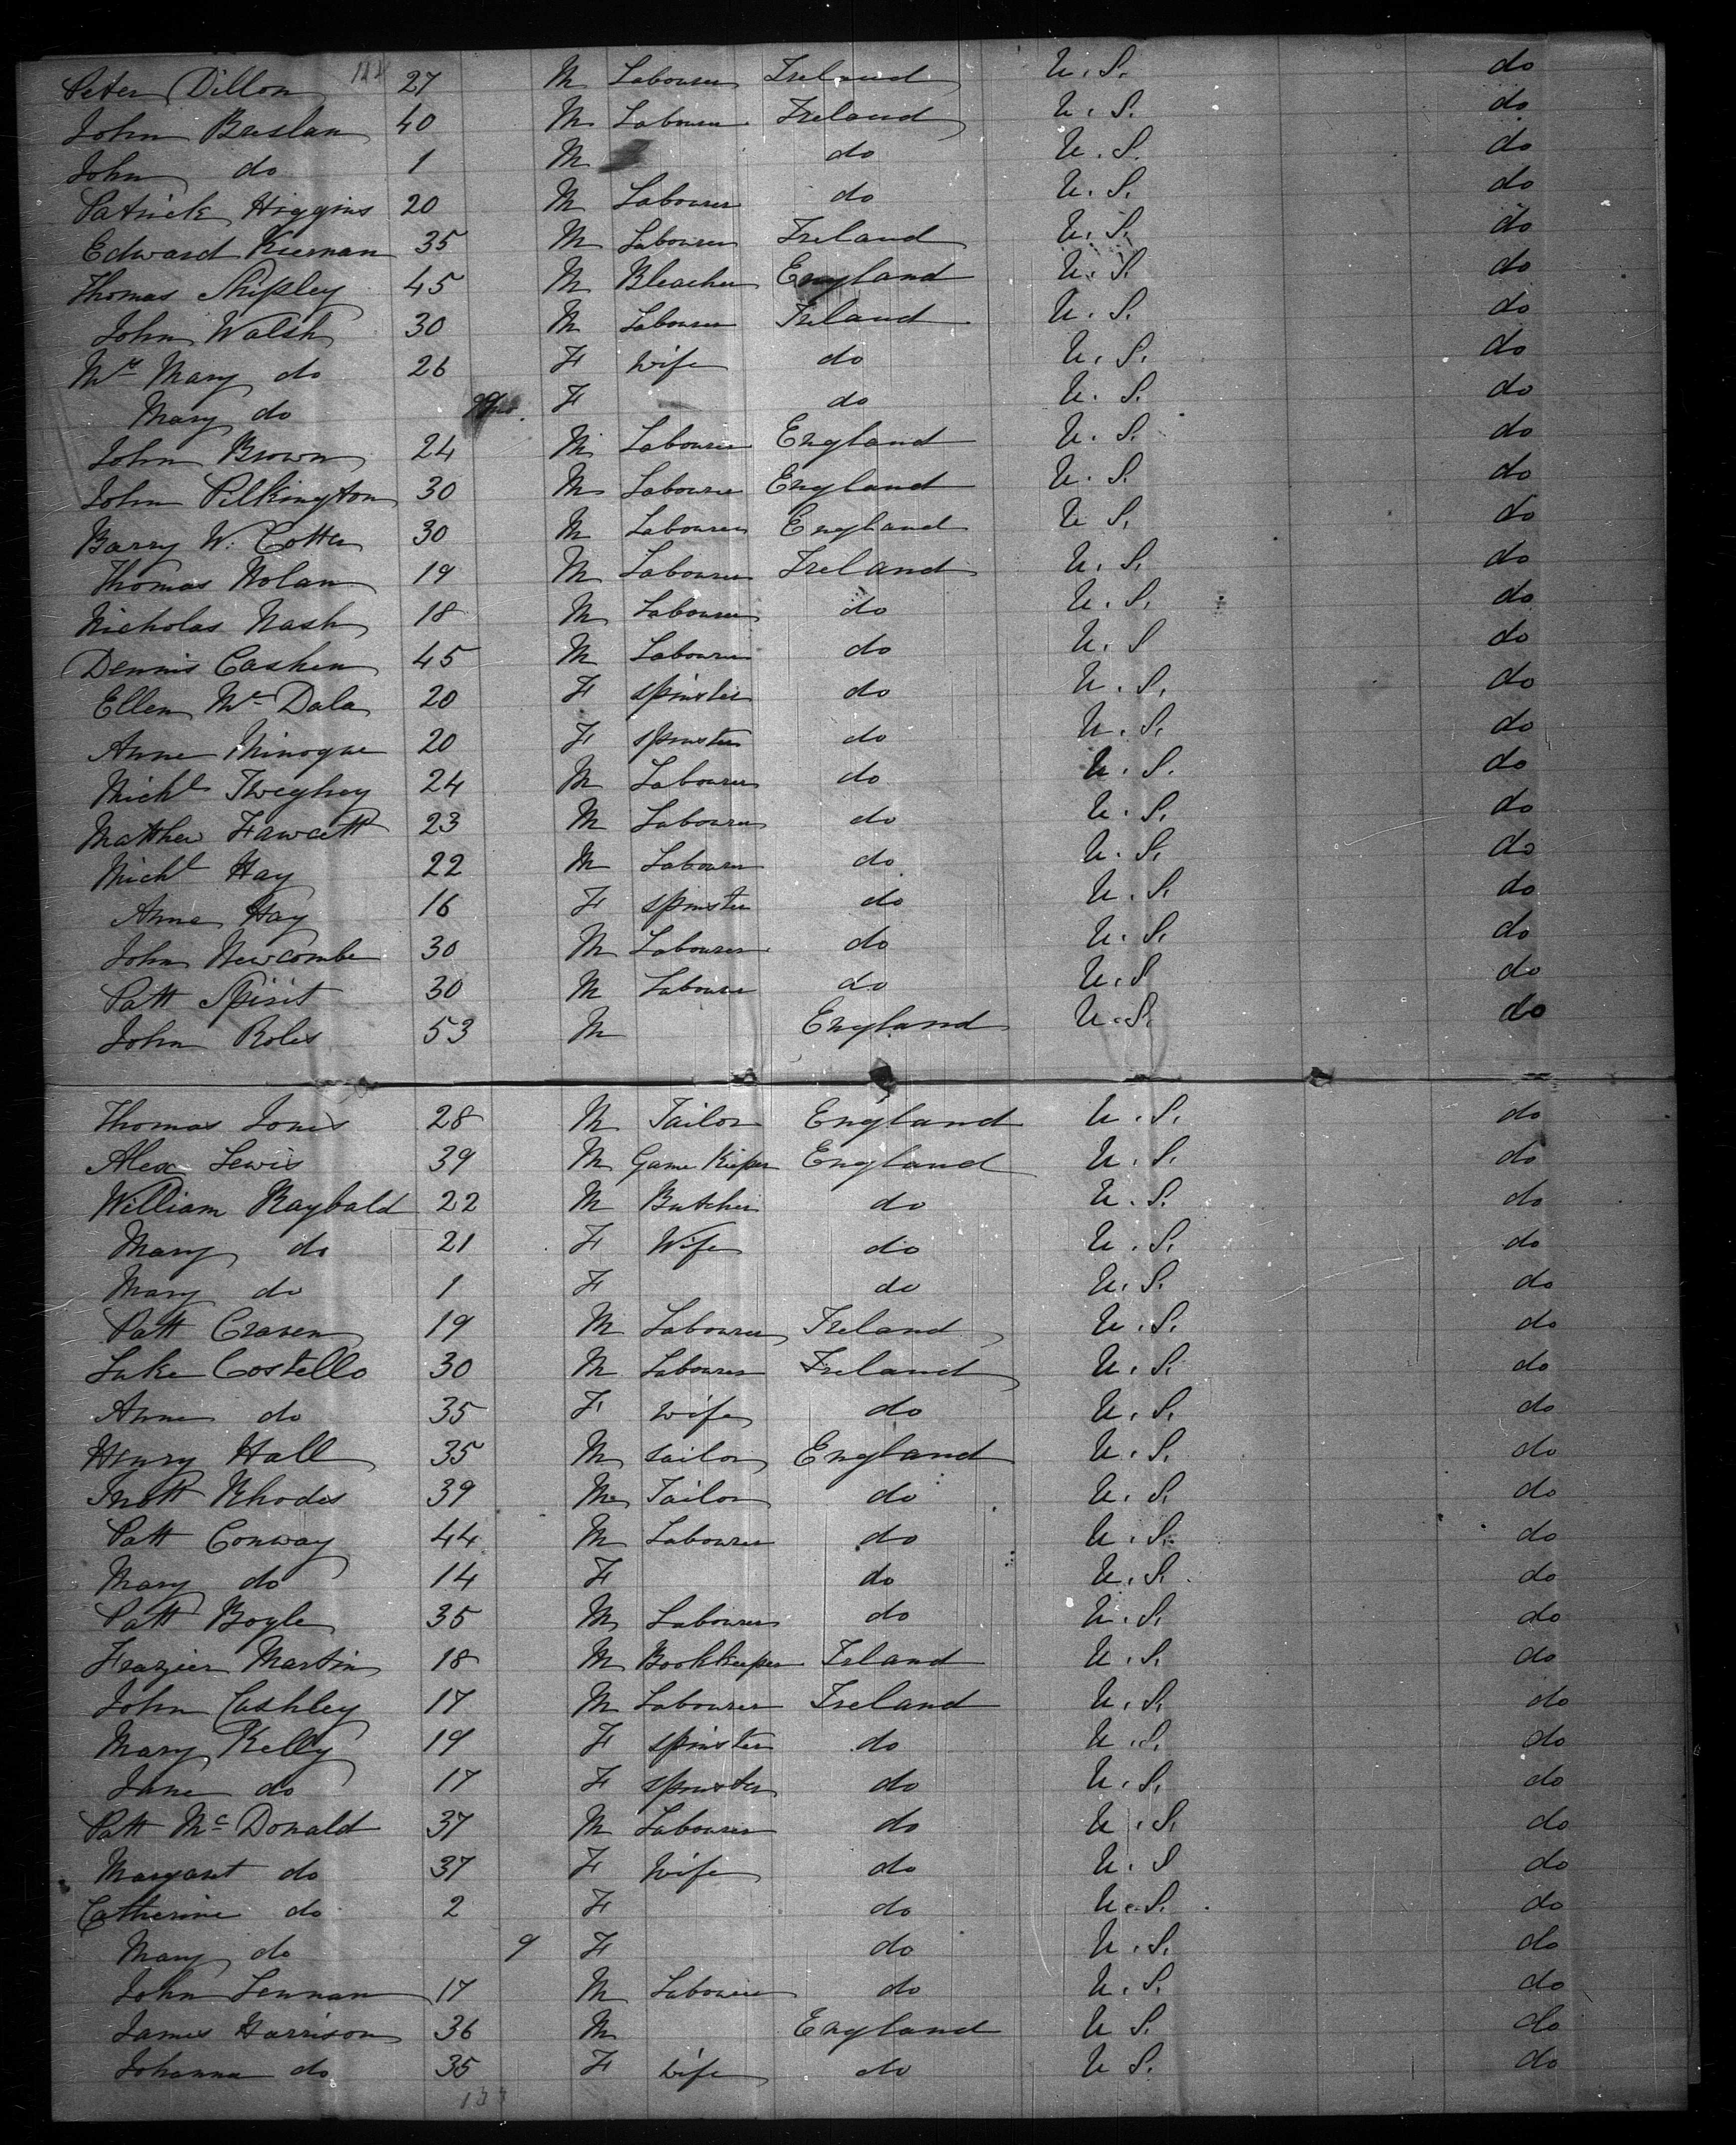 Peter Dillon 27 M Labourer Ireland U. S. do
John Breslan 40 M Labourer Ireland U. S. do
John do 1 M do U. S. do
Patrick Higgins 20 M Labourer do U. S. do
Edward Kiernan 35 M Labourer Ireland U. S. do
Thomas Shipley 45 M Bleacher England U. S. do
John Walsh 30 M Labourer Ireland U. S. do
Mrs Mary do 26 F Wife do U. S. do
Mary do F do U. S. do
John Brown 24 M Labourer England U. S. do
John Pilkington 30 M Labourer England U. S. do
Barry W. Cotter 30 M Labourer England U S. do
Thomas Nolan 19 M Labourer Ireland U. S. do
Nicholas Nash 18 M Labourer do U. S. do
Dennis Cashen 45 M Labourer do U. S do
Ellen Mc Dala 20 F spinster do U. S. do
Anne Minogue 20 F spinster do U. S. do
Michl Tweghey 24 M Labourer do U. S. do
Matthew Fawcett 23 M Labourer do U. S. do
Michl Hay 22 M Labourer do U. S. do
Anne Hay 16 F spinster do U. S. do
John Newcombe 30 M Labourer do U. S. do
Patt Spirit 30 M Labourer do U. S do
John Roles 53 M England U. S. do
Thomas Jones 28 M Tailor England U. S. do
Alex Lewis 39 M Game Keeper England U. S. do
William Raybald 22 M Butcher do U. S. do
Mary do 21 F Wife do U. S. do
Mary do 1 F do U. S. do
Patt Craven 19 M Labourer Ireland U. S. do
Luke Costello 30 M Labourer Ireland U. S. do
Anne do 35 F wife do U. S. do
Henry Hall 35 M sailor England U. S. do
Rhodes 39 M Tailor do U. S. do
Patt Conway 44 M Labourer do U. S. do
Mary do 14 F do U. S. do
Patt Boyle 35 M Labourer do U. S. do
Frazier Martin 18 M Bookkeeper Irland U. S. do
John Cashley 17 M Labourer Ireland U. S. do
Mary Kelly 19 F spinster do U. S. do
Jane do 17 F spinster do U. S. do
Patt Mc Donald 37 M Labourer do U. S. do
Margaret do 37 F Wife do U. S do
Catherine do 2 F do U. S. do
Mary do 9 F do U. S. do
John Lennan 17 M Labourer do U. S. do
James Harrison 36 M England U S. do
Johanna do 35 F wife do U S. do